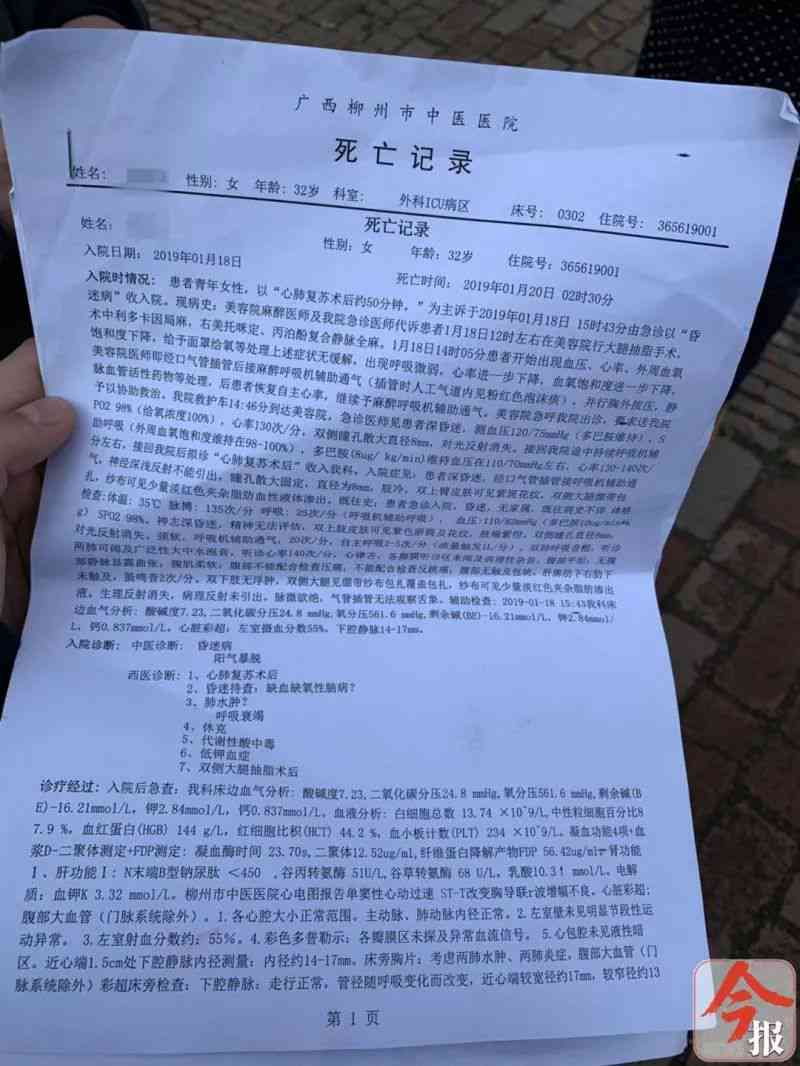 广西柳州市中医医院
死亡记录
姓名: 性别: 女 年龄: 32岁 科室: 外科ICU病区 床号: 0302 住院号: 365619001
死亡记录
姓名: 性别: 女 年龄: 32岁 住院号: 365619001
入院日期: 2019年01月18日 死亡时间: 2019年01月20日 02时30分
入院时情况: 患者青年女性, 以“心肺复苏术后约50分钟, ”为主诉于2019年01月18日 15时43分由急诊以“昏
迷病”收入院。现病史: 美容院麻醉医师及我院急诊医师代诉患者1月18日12时左右在美容院行大腿抽脂手术,
术中利多卡因局麻, 右美托咪定、丙泊酚复合静脉全麻。1月18日14时05分患者开始出现血压、心率、外周血氧
饱和度下降, 给予面罩给氧等处理上述症状无缓解, 出现呼吸微弱, 心率进一步下降, 血氧饱和度进一步下降,
美容院医师即经口气管插管后接麻醉呼吸机辅助通气(插管时人工气道内见粉红色泡沫痰), 并行胸外按压, 静
脉血管活性药物等处理, 后患者恢复自主心率, 继续予麻醉呼吸机辅助通气, 美容院急呼我院出诊, 要求送我院
予以协助救治, 我院救护车14:46分到达美容院, 急诊医师见患者深昏迷, 测血压120/75mmHg(多巴胺维持), S
PO2 98%(给氧浓度100%), 心率130次/分, 双侧瞳孔散大直径8mm, 对光反射消失。接回我院途中持续呼吸机
辅助呼吸(外周血氧饱和度维持在98-100%), 多巴胺(8ug/ kg/min)维持血压在110/70mmHg左右, 心率130-140次/
分左右, 接回我院后拟诊“心肺复苏术后”收入我科。入院症见: 患者深昏迷, 经口气管插管接呼吸机辅助通
气, 神经深浅反射不能引出, 瞳孔散大固定, 直径为8mm, 肢冷, 双上臂皮肤可见紫斑花纹, 双侧大腿绷带包
扎, 纱布可见少量淡红色夹杂脂肪血性液体渗出。既往史: 患者急诊入院, 昏迷, 无家属, 既往病史不详 体格
检查: 体温: 35℃ 脉搏: 135次/分 呼吸: 25次/分(呼吸机辅助呼吸), 血压: 110/82mmHg
SPO2 98%, 神志深昏迷, 精神无法评估, 双上肢皮肤可见紫色瘀斑及花纹,
对光反射消失。颈软, 呼吸机辅助通气, 20次/分, 自主呼吸2-5次/分
两肺可闻及广泛性大中水泡音, 听诊心率140次/分, 心律齐,
腹部静脉显露曲张, 腹肌柔软, 腹部不能配合检查压痛, 不能配合检查反跳痛, 腹部无触及包块, 肝肋防下右肋下
未触及, 肠鸣音2次/分, 双下肢无浮肿, 双侧大腿见绷带纱布包扎覆盖包扎, 纱布可见少量淡红色夹杂脂肪渗出
液。生理反射消失, 病理反射未引出。脉微欲绝, 气管插管无法观察舌象。辅助检查: 2019-01-18 15:43我科床
边血气分析: 酸碱度7.23, 二氧化碳分压24.8 mmHg, 氧分压561.6 mmHg, 剩余碱(BE)-16.21mmol/L, 钾2.84mmol/
L, 钙0.837mmol/L。心脏彩超: 左室摄血分数55%。下腔静脉14-17mm。
入院诊断: 中医诊断: 昏迷病
阳气暴脱
西医诊断: 1、心肺复苏术后
2、昏迷待查: 缺血缺氧性脑病?
3、肺水肿?
呼吸衰竭
4、休克
5、代谢性酸中毒
6、低钾血症
7、双侧大腿抽脂术后
诊疗经过: 入院后急查: 我科床边血气分析: 酸碱度7.23, 二氧化碳分压24.8 mmHg, 氧分压561.6 mmHg, 剩余碱(B
E)-16.21mmol/L, 钾2.84mmol/L, 钙0.837mmol/L。血液分析: 白细胞总数 13.74 ×10^9/L, 中性粒细胞百分比8
7.9 %, 血红蛋白(HGB) 144 g/L, 红细胞比积(HCT) 44.2 %, 血小板计数(PLT) 234 ×10^9/L。凝血功能4项+血
浆D-二聚体测定+FDP测定: 凝血酶时间 23.70s, 二聚体12.52ug/ml, 纤维蛋白降解产物FDP 56.42ug/ml 肾功能
Ⅰ、肝功能Ⅰ: N末端B型钠尿肽 <450 , 谷丙转氨酶 51U/L, 谷草转氨酶 68 U/L, 乳酸10.31 mmol/L, 电解
质: 血钾K 3.32 mmol/L。柳州市中医医院心电图报告单窦性心动过速 ST-T改变胸导联r波增幅不良。心脏彩超:
腹部大血管(门脉系统除外)。1.各心腔大小正常范围。主动脉、肺动脉内径正常。2.左室壁未见明显节段性运
动异常。 3.左室射血分数约: 55%。4.彩色多普勒示: 各瓣膜区未探及异常血流信号。 5.心包腔未见液性暗
区。近心端1.5cm处下腔静脉内径测量: 内径约14-17mm。床旁胸片: 考虑两肺水肿、两肺炎症, 腹部大血管(门
脉系统除外)彩超床旁检查: 下腔静脉: 走行正常, 管径随呼吸变化而改变, 近心端较宽径约17mm, 较窄径约13
第 1 页
今报